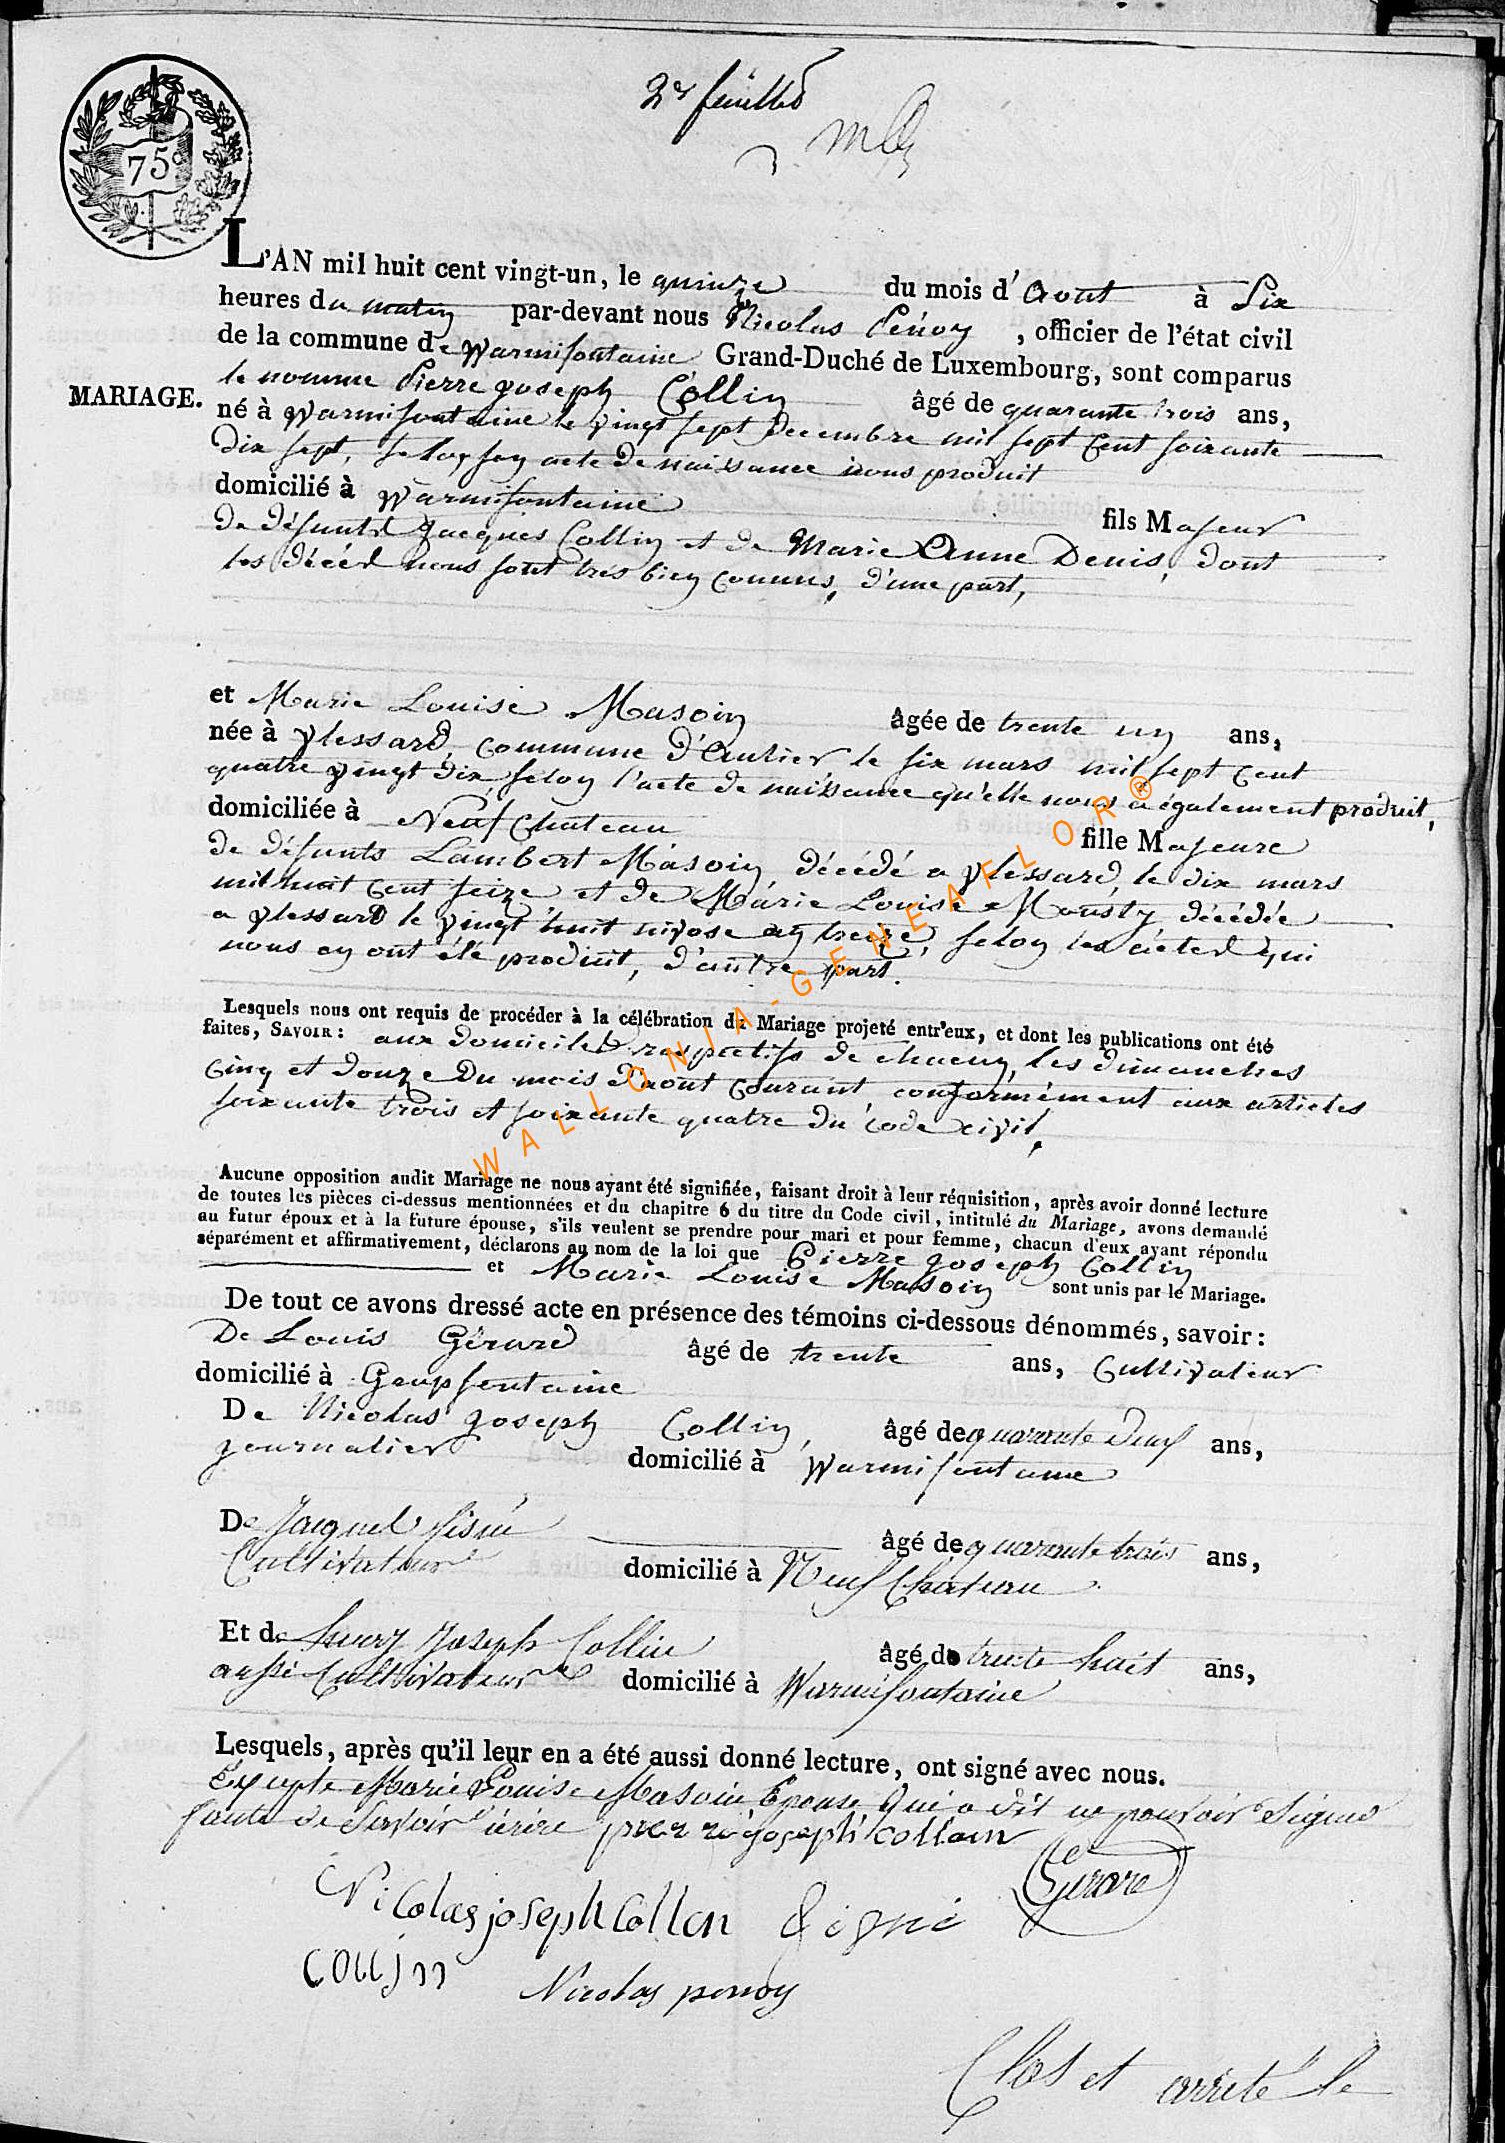 2e feuillet
75c
L'AN mil huit cent vingt-un, le quinze du mois d'Aout à Six
heures du matin par-devant nous Nicolas Penoy, officier de l'état civil
de la commune de Warmifontaine Grand-Duché de Luxembourg, sont comparus
MARIAGE.
le nommé Pierre joseph Collin âgé de quarante trois ans,
né à Warmifontaine le vingt sept Decembre mil sept Cent soixante
dix sept, selon son acte de naissance nous produit
domicilié à Warmifontaine fils Majeur
de défunts Jacques Collin et de Marie Anne Denis, dont
les décès nous sont tres bien connus, d'une part,
et Marie Louise Masoin âgée de trente un ans,
née à Vlessard, commune d'Anlier le six mars mil sept Cent
quatre vingt dix, selon l'acte de naissance qu'elle nous a également produit,
domiciliée à Neufchateau fille Majeure
de défunts Lambert Masoin, décédé a Vlessard, le dix mars
mil huit Cent seize et de Marie Louise Mousty décédée
a Vlessard le vingt huit nivose an treize, selon les actes qui
nous en ont été produit, d'autre part.
Lesquels nous ont requis de procéder à la célébration du Mariage projeté entr'eux, et dont les publications ont été
faites, SAVOIR: aux domiciles respectifs de chacun, les dimanches
Cinq et douze Du mois d'aout Courant, conformément aux articles
soixante trois et soixante quatre du code civil,
Aucune opposition audit Mariage ne nous ayant été signifiée, faisant droit à leur réquisition, après avoir donné lecture
de toutes les pièces ci-dessus mentionnées et du chapitre 6 du titre du Code civil, intitulé du Mariage, avons demandé
au futur époux et à la future épouse, s'ils veulent se prendre pour mari et pour femme, chacun d'eux ayant répondu
séparément et affirmativement, déclarons au nom de la loi que Pierre joseph Collin
et Marie Louise Masoin sont unis par le Mariage.
De tout ce avons dressé acte en présence des témoins ci-dessous dénommés, savoir:
De Louis Gérard âgé de trente ans, Cultivateur
domicilié à Grapfontaine
De Nicolas joseph Collin, âgé de quarante deux ans,
journalier domicilié à Warmifontaine
De Jacques âgé de quarante trois ans,
Cultivateur domicilié à Neufchateau
Et de henry Joseph Collin âgé de trente huit ans,
aussi Cultivateur domicilié à Warmifontaine
Lesquels, après qu'il leur en a été aussi donné lecture, ont signé avec nous.
Excepte Marie Louise Masoin Epouse qui a dit ne pouvoir Signer
faute de Savoir écrire pierre joseph collein
Gerard
Nicolas joseph Collen
Collin Nicolas penoy
Clos et arreté le
WALLONIA-GENEAFLOR®